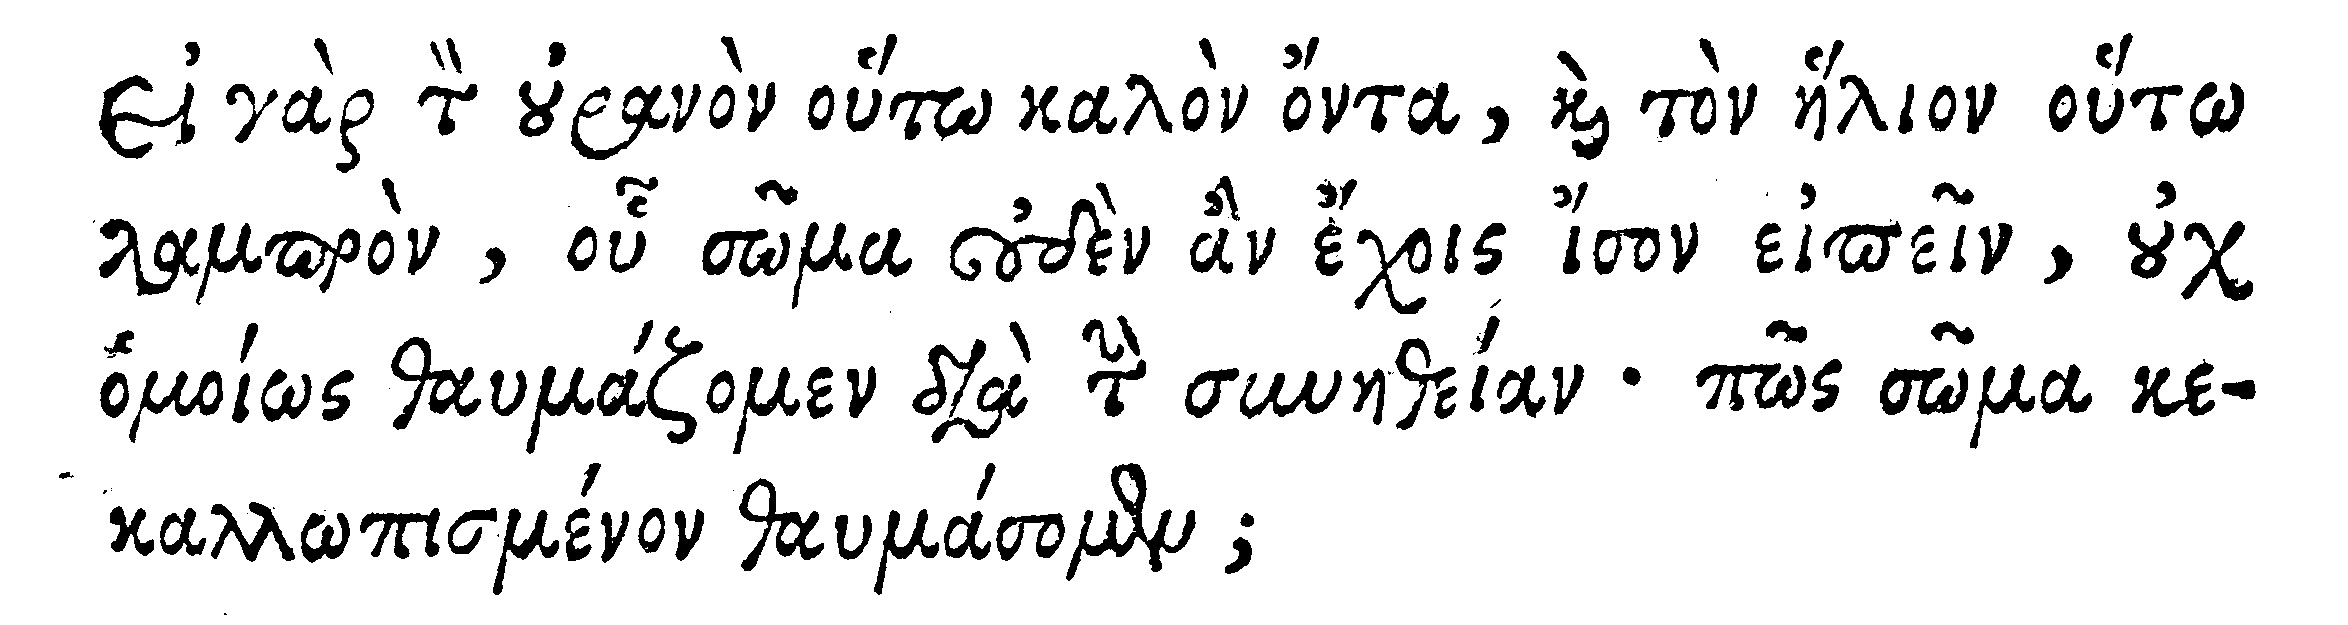 Εἰ γὰρ τὸν οὐρανὸν οὕτω καλὸν ὄντα, καὶ τὸν ἥλιον οὕτω
λαμπρὸν, οὗ σῶμα οὐδὲν ἂν ἔχοις ἴσον εἰπεῖν, οὐχ
ὁμοίως θαυμάζομεν διὰ τὴν συνηθείαν · πῶς σῶμα κε-
καλλωπισμένον θαυμάσομεν ;